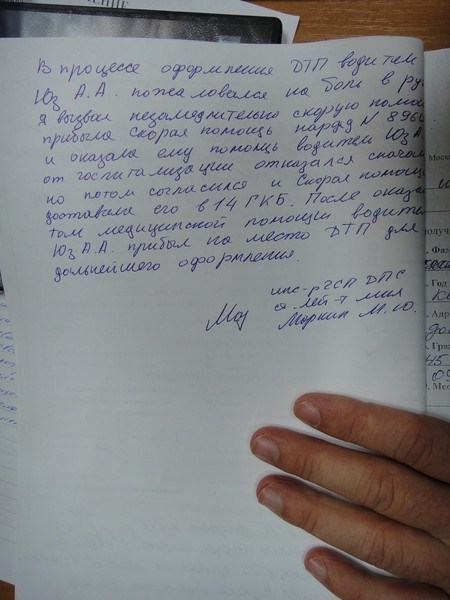 В процессе оформления ДТП водитель
Юз А.А. пожаловался на боли в рук
я вызвал незамедлительно скорую помощ
прибыла скорая помощь наряд N 896
и оказала ему помощь водитель Юз А.
от госпитализации отказался сначала
но потом согласился и Скорая помощь
доставила его в 14 ГКБ. После оказа
том медицинской помощи водитель
Юз А.А. прибыл на место ДТП для
дальнейшего оформления.
инс-р ГСП ДПС
лей-т
Маркин М.Ю.
Моск
Фам
Год
Адр
Граж
45
Мес